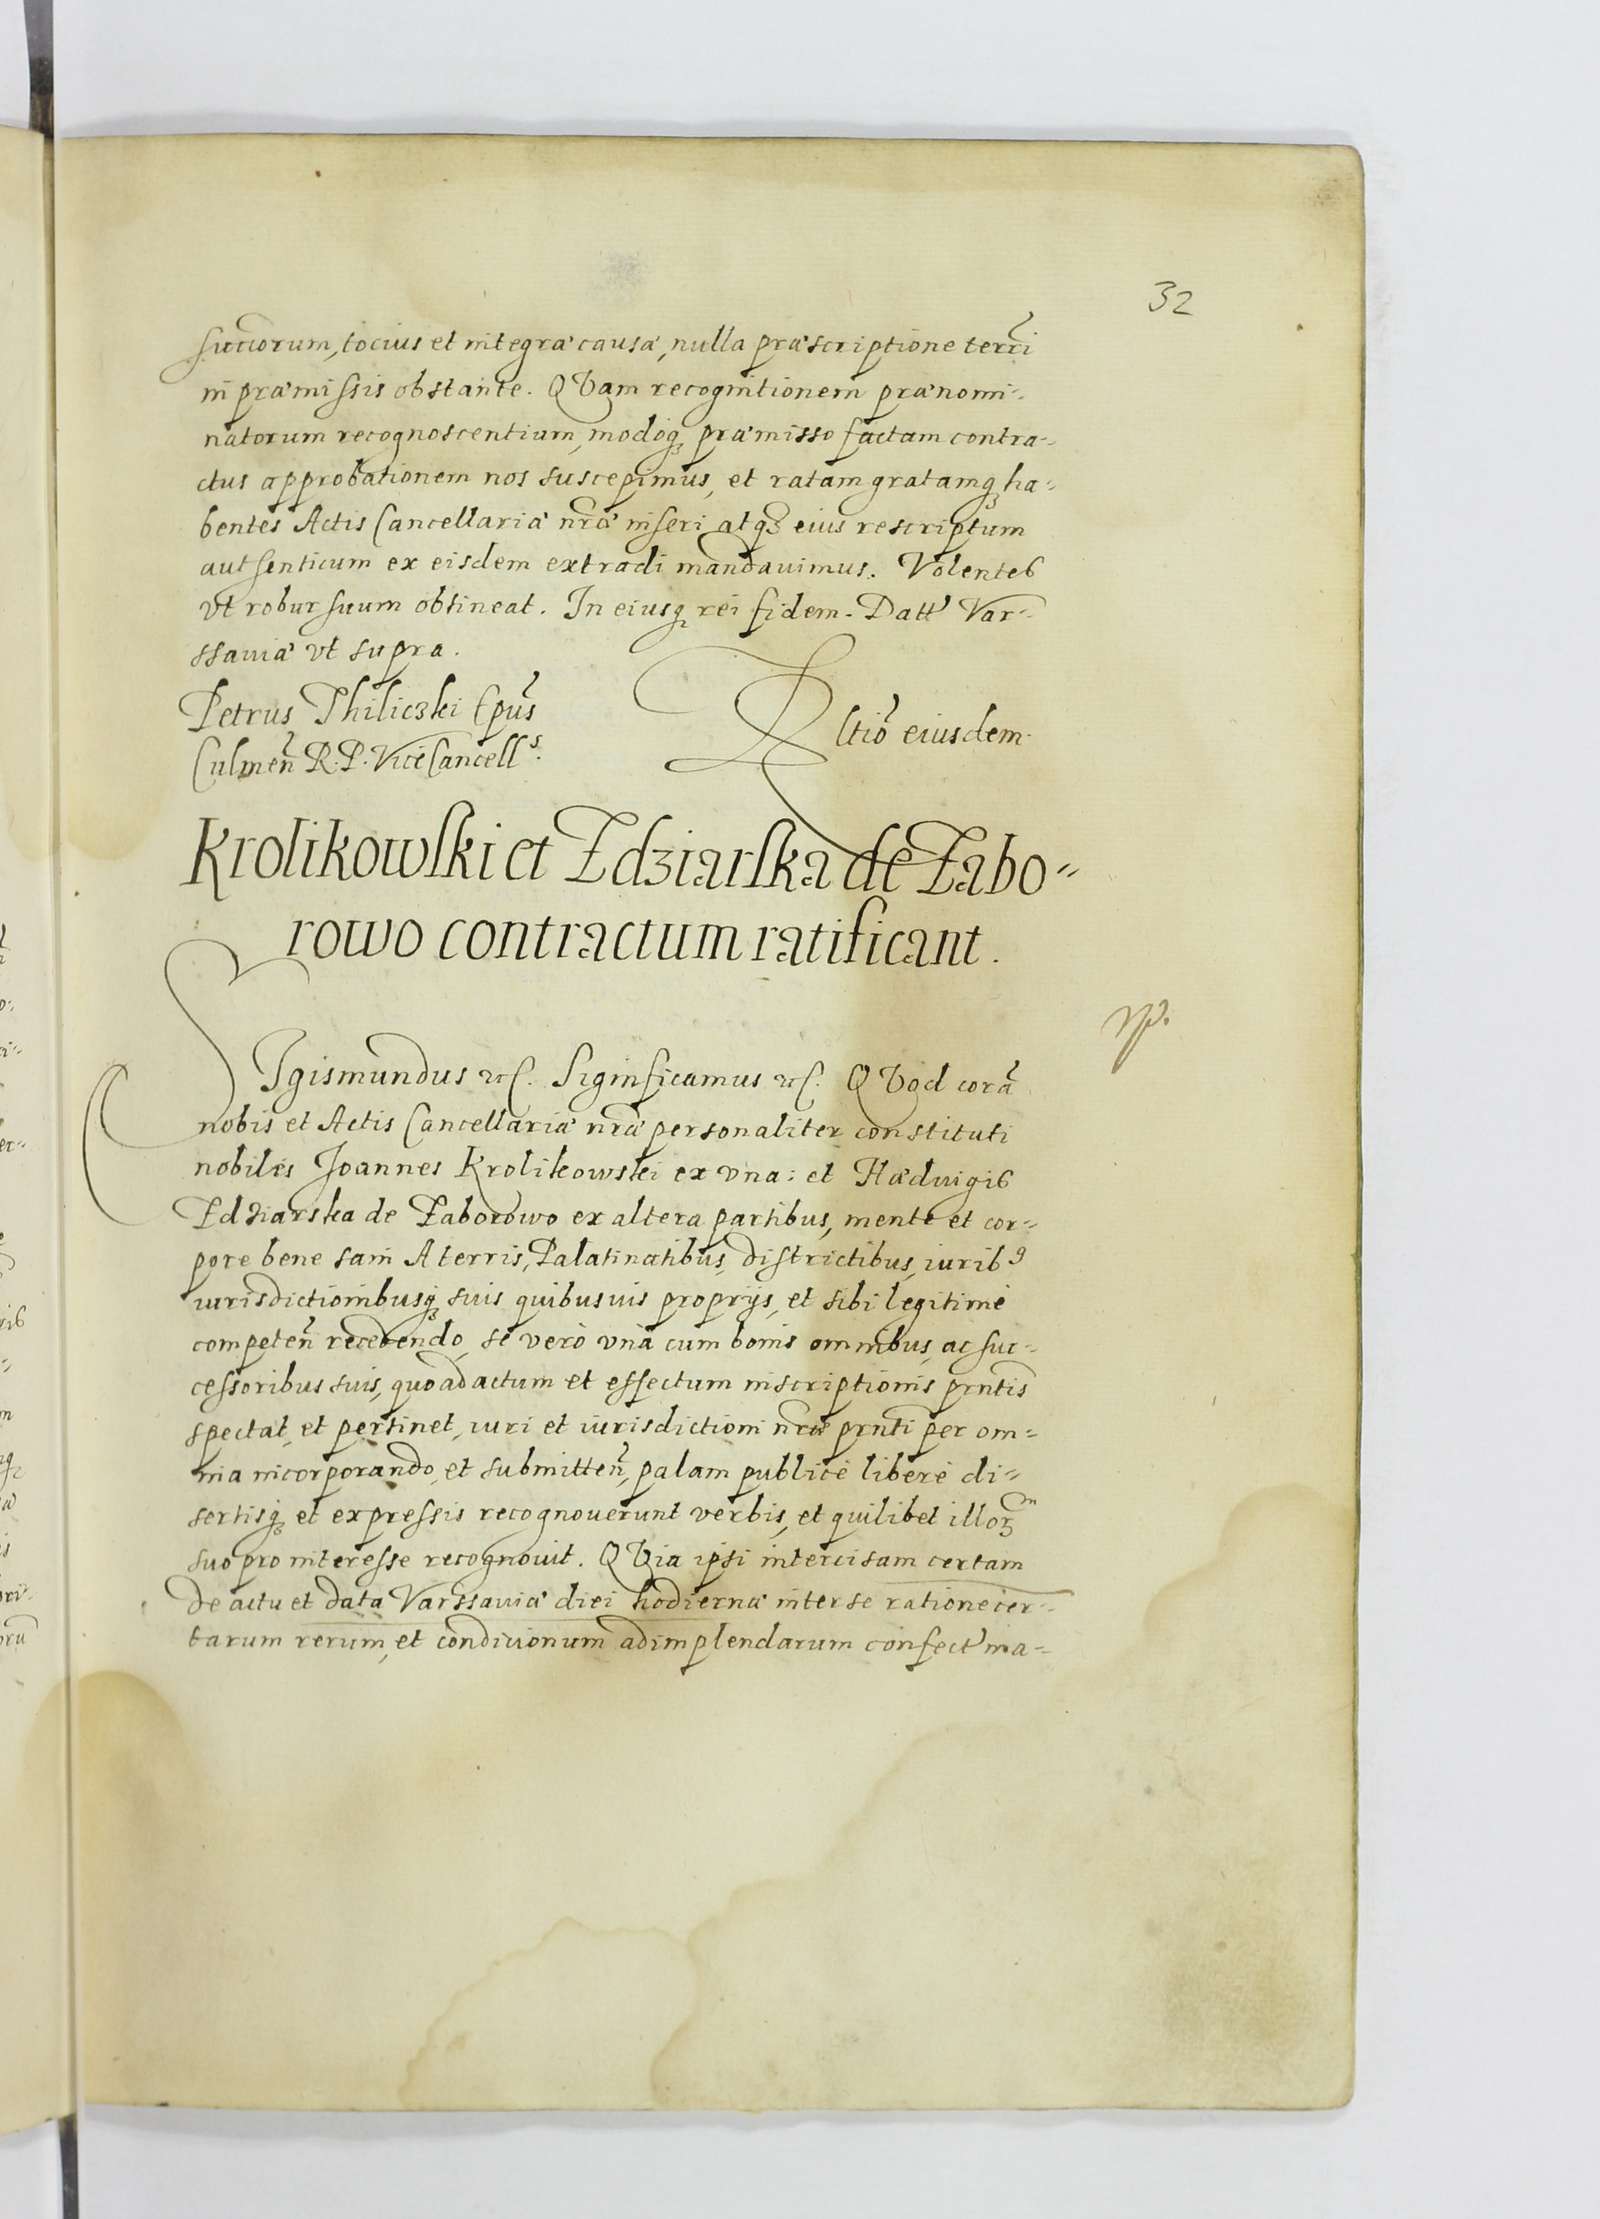 32
succiorum, tocius et integræ causæ, nulla præscriptione terrĩ
in præmissis obstante. QVam recognitionem prænomi-
natorum recognoscentium, modoq₃ præmisso factam contra-
ctus approbationem nos suscepimus, et ratam gratamq₃ ha-
bentes Actis Cancellariæ nr̃æ inseri atq₃ eius rescriptum
authenticum ex eisdem extradi mandauimus. Volentes
vt robur suum obtineat. In eiusq₃ rei fidem. Datt Var-
ssauiæ vt supra.
Petrus Thiliczki Epũs
Culmeñ R. P. ViceCancells.
Rltiõ eiusdem.
Krolikowski et Zdziarska de Zabo-
rowo contractum ratificant.
np.
SIgismundus etc. Significamus etc. QVod corã
nobis et Actis Cancellariæ nr̃æ personaliter constituti
nobiles Joannes Krolikowski ex vna: et Hæduigis
Zdziarska de Zaborowo ex altera partibus, mente et cor-
pore bene sani A terris, Palatinatibus, districtibus, iurib9
iurisdictionibusq₃ suis quibusuis proprijs, et sibi legitimè
competeñ recedendo, se verò vnà cum bonis omnibus, ac suc-
cessoribus suis, quo ad actum et effectum inscriptionis prñtis
spectat, et pertinet, iuri et iurisdictioni nr̃æ prñti per om-
nia incorporando, et submitteñ, palam publicè liberè di-
sertisq₃ et expressis recognouerunt verbis, et quilibet illorm
suo pro interesse recognouit. QVia ipsi intercisam certam
de actu et data Varssauiæ diei hodiernæ inter se ratione cer-
tarum rerum, et condicionum adimplendarum confect ina-